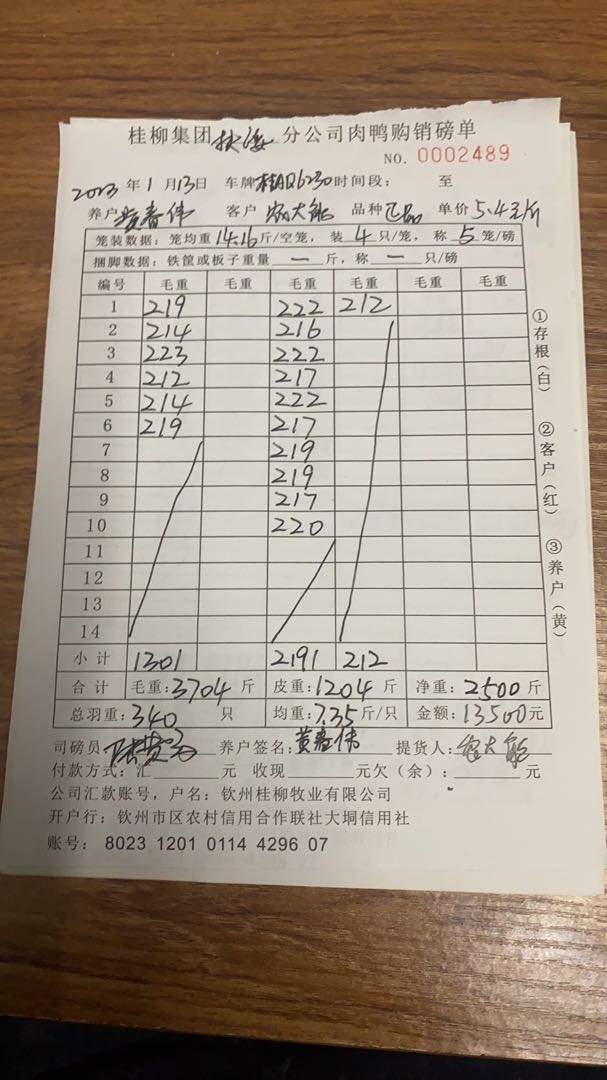 桂柳集团 分公司肉鸭购销磅单
NO. 0002489
2023年1月13日 车牌桂AQ6230时间段: 至
养户 黄春伟 客户 农大能 品种 正品 单价 5.4元/斤
笼装数据: 笼均重14.16斤/空笼, 装4只/笼, 称5笼/磅
捆脚数据: 铁筐或板子重量 一 斤, 称 一 只/磅
编号 毛重 毛重 毛重 毛重 毛重 毛重
1 219 222 212
2 214 216
3 223 222
4 212 217
5 214 222
6 219 217
7 219
8 219
9 217
10 220
11
12
13
14
小计 1301 2191 212
合计 毛重:3704斤 皮重:1204斤 净重:2500斤
总羽重:340只 均重:7.35斤/只 金额:13500元
司磅员 养户签名:黄春伟 提货人:农大能
付款方式: 汇 元 收现 元欠(余): 元
公司汇款账号, 户名: 钦州桂柳牧业有限公司
开户行: 钦州市区农村信用合作联社大垌信用社
账号: 8023 1201 0114 4296 07
①存根(白)
②客户(红)
③养户(黄)